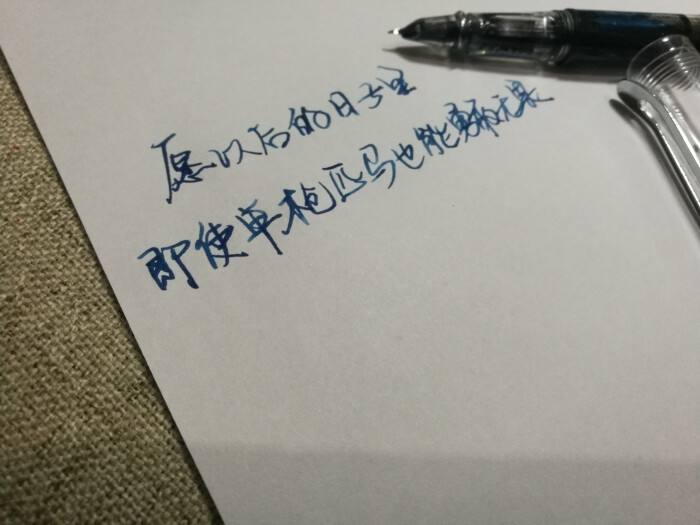 愿以后的日子里
即使单枪匹马也能勇敢无畏